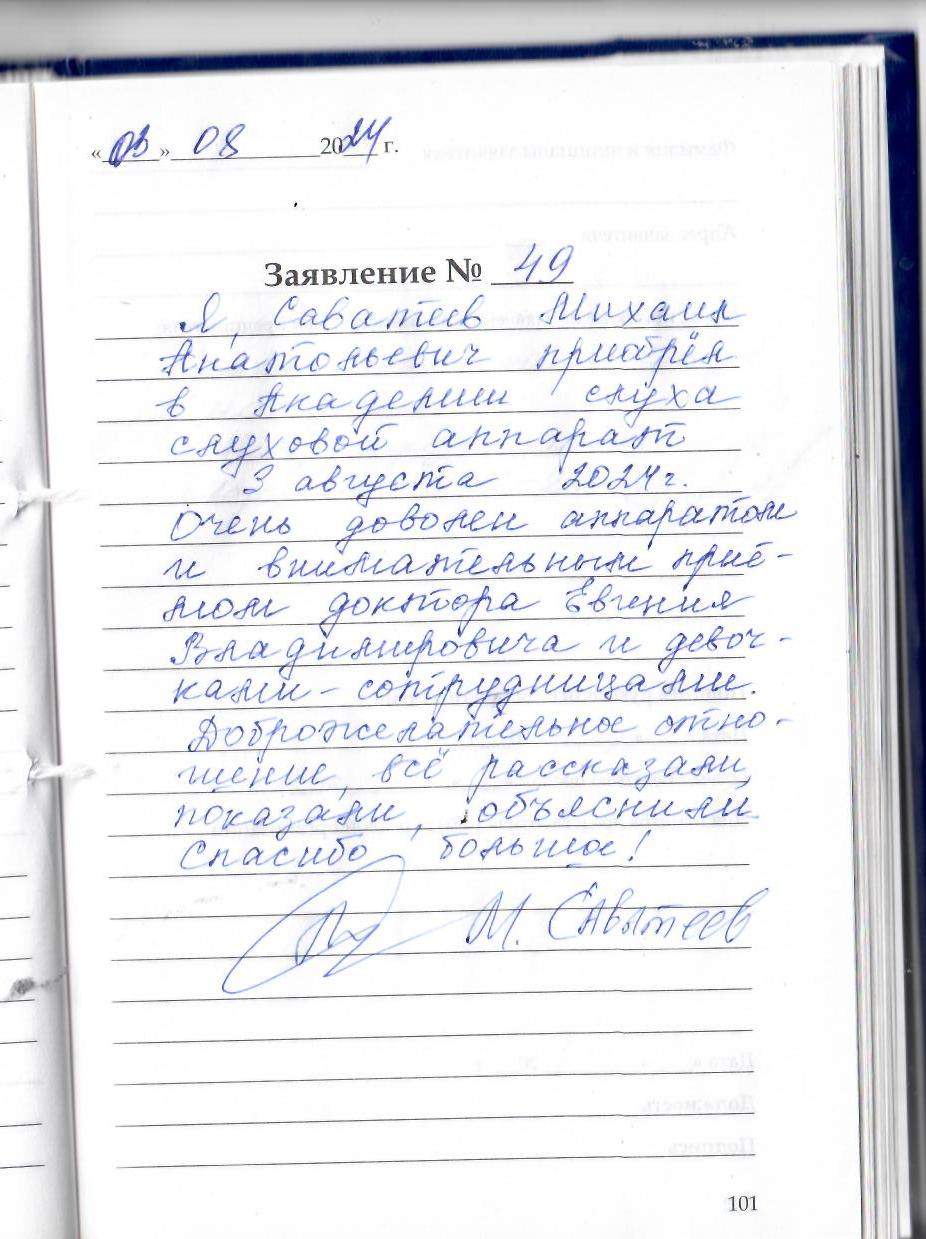 « 03 » 08 2024 г.
Заявление № 49
Я, Саватеев Михаил
Анатольевич приобрёл
в Академии слуха
слуховой аппарат
3 августа 2024 г.
Очень доволен аппаратом
и внимательным приё-
мом доктора Евгения
Владимировича и девоч-
ками - сотрудницами.
Доброжелательное отно-
шение, всё рассказали,
показали, объяснили.
Спасибо большое!
М. Саватеев
101